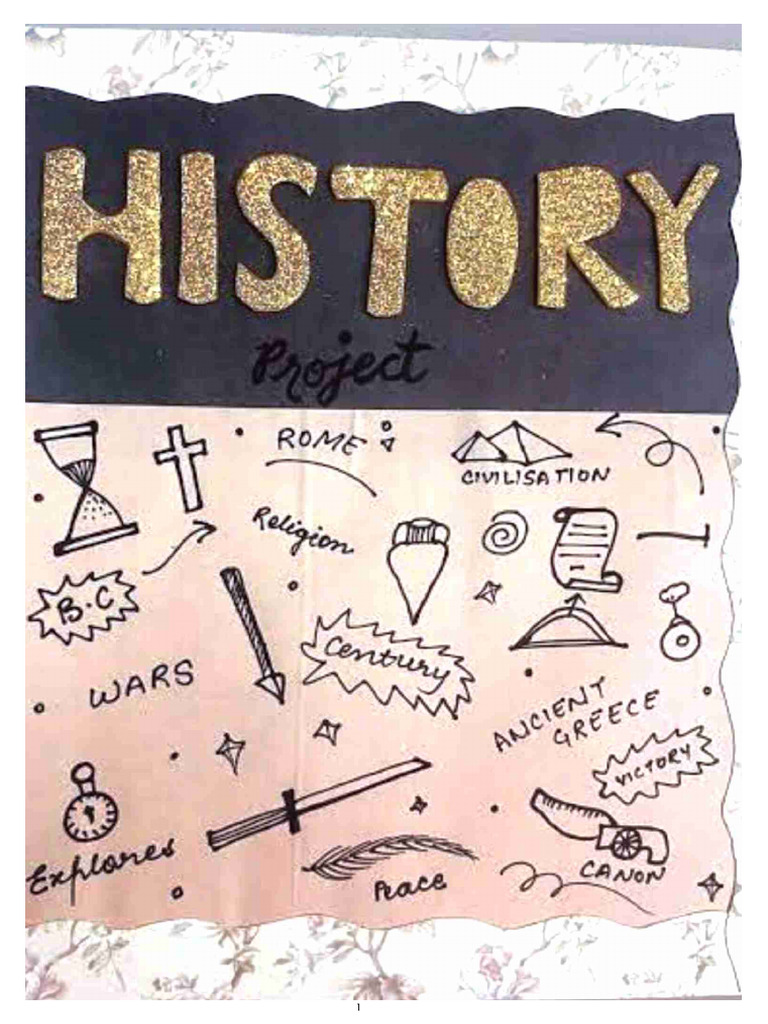 HISTORY
Project
ROME
CIVILISATION
Religion
B.C
Century
WARS
ANCIENT
GREECE
VICTORY
Explores
CANON
Peace
1